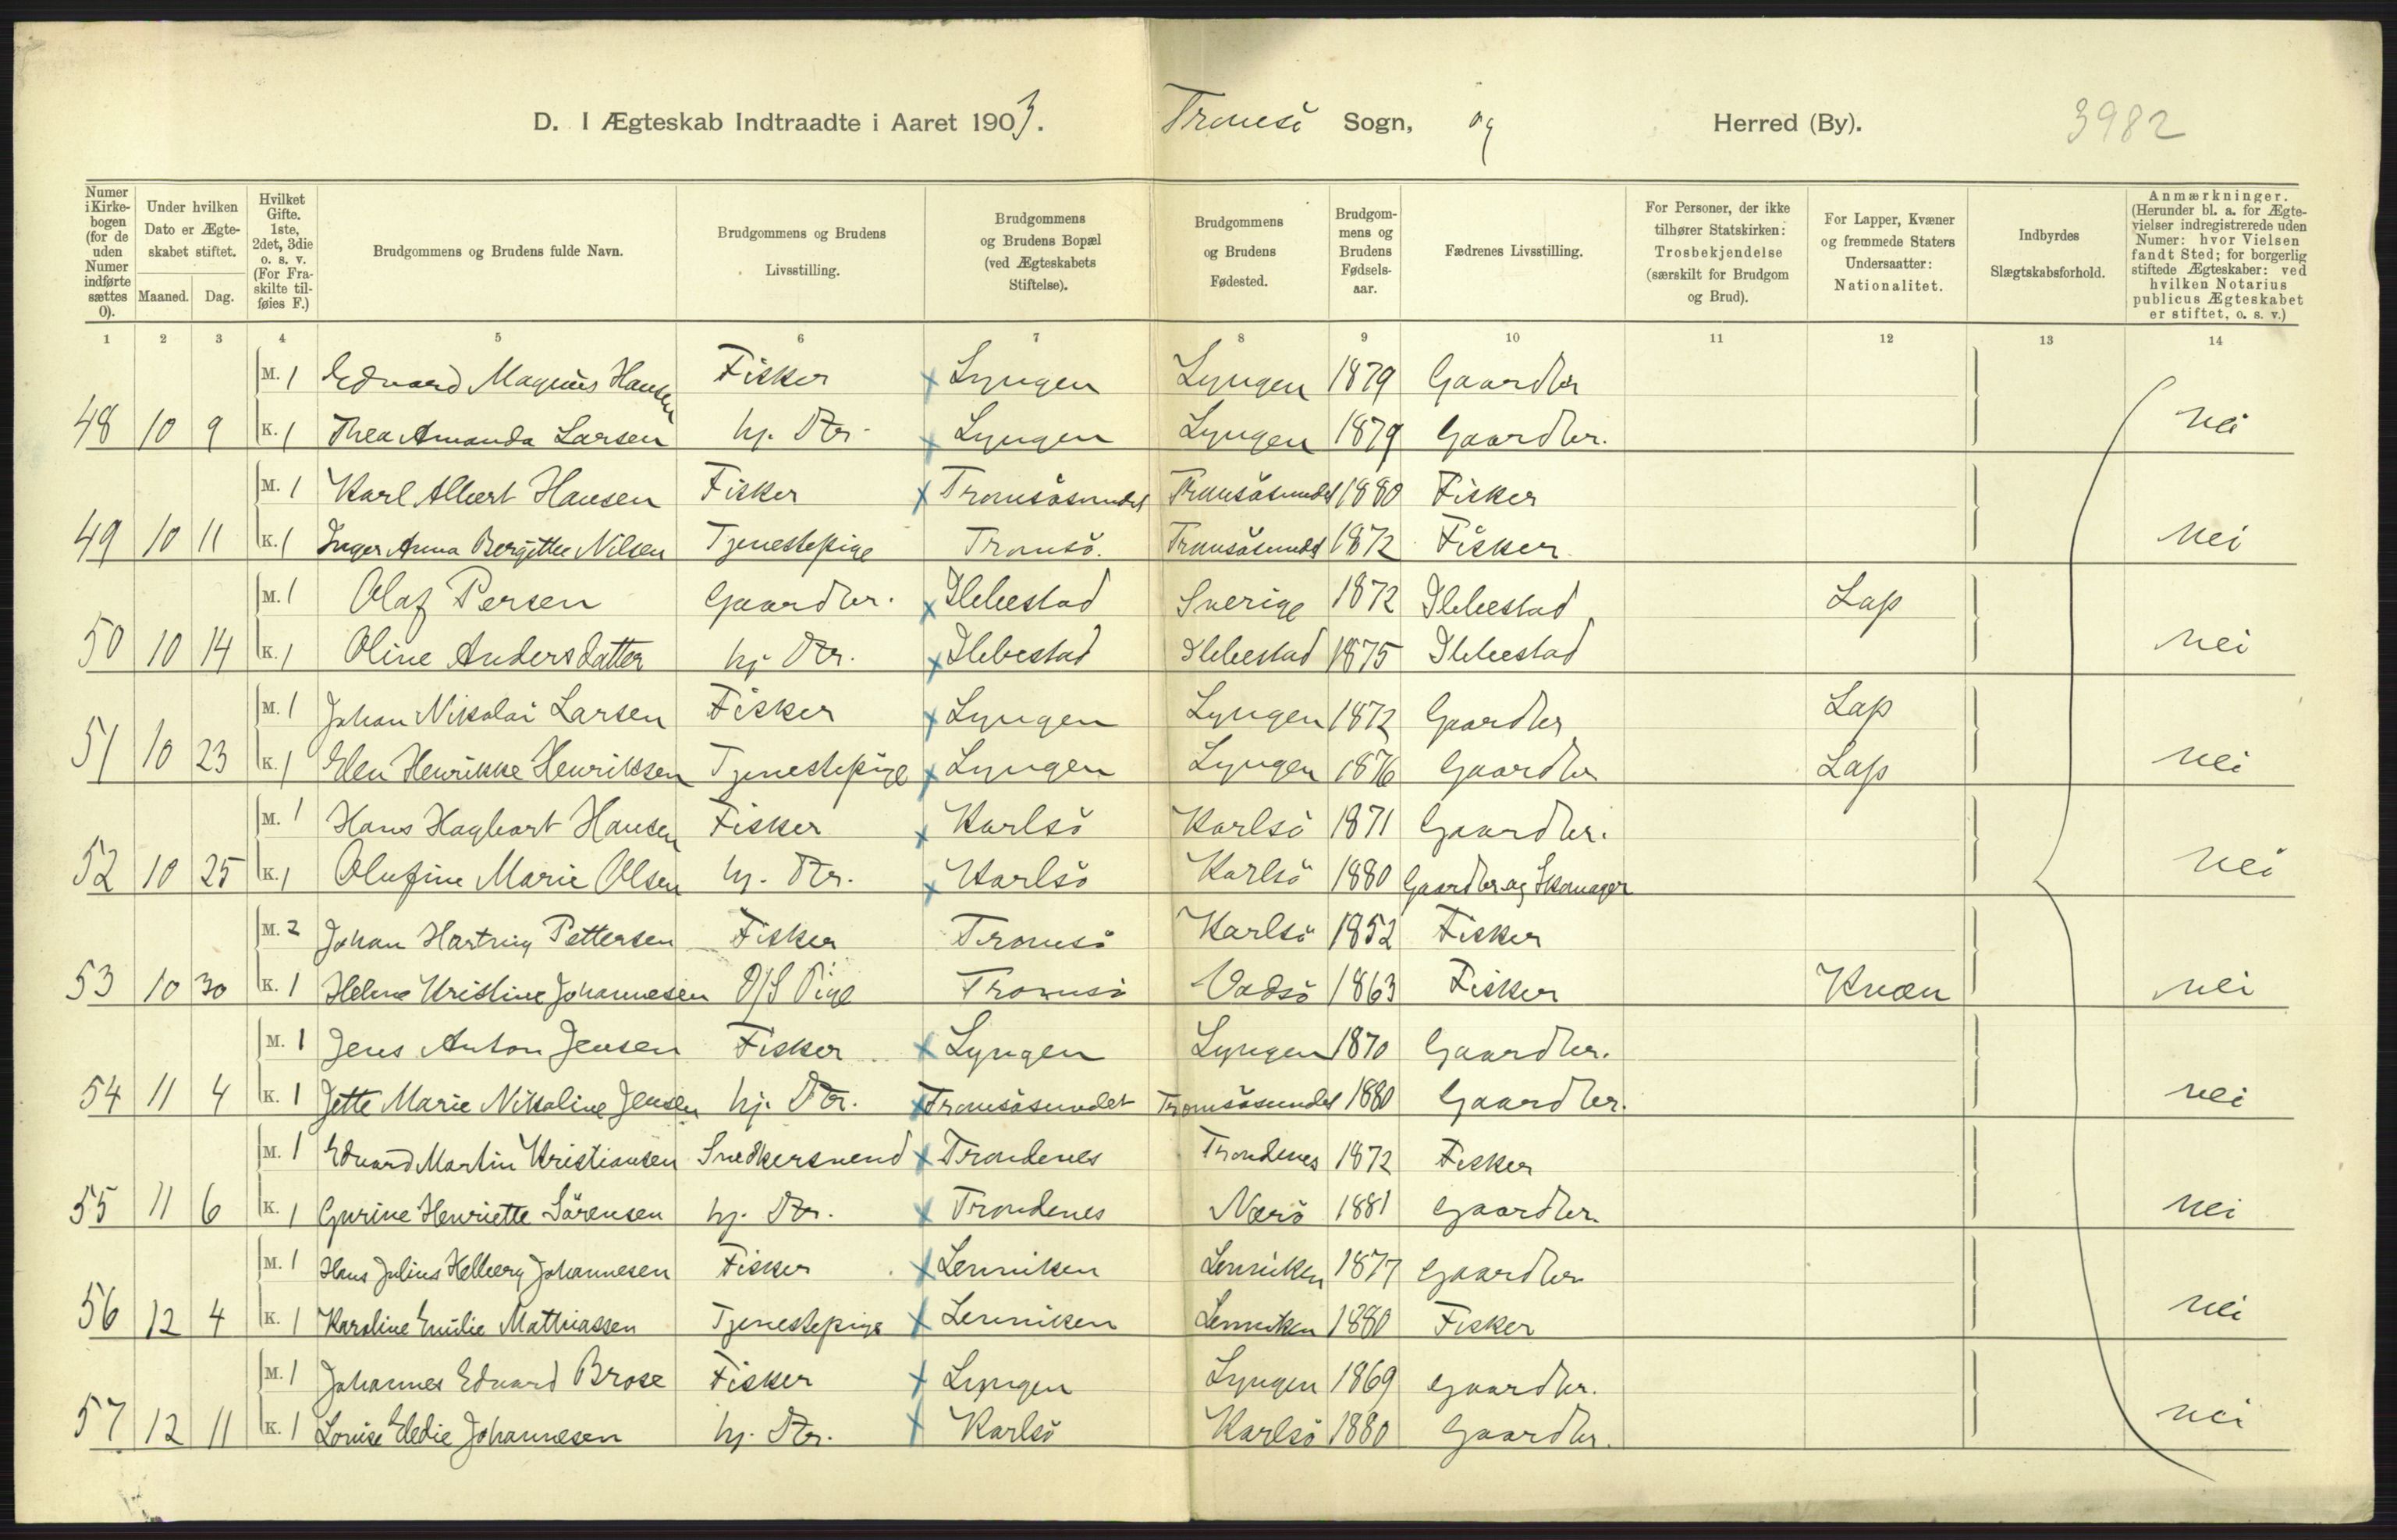 D. I Ægteskab Indtraadte i Aaret 1903. Tromsö Sogn, og Herred (By). 3982
Numer i Kirkebogen (for de uden Numer indførte sættes 0). Under hvilken Dato er Ægteskabet stiftet. Maaned. Dag. Hvilket Gifte. 1ste, 2det, 3die o. s. v. (For Fraskilte tilføies F.) Brudgommens og Brudens fulde Navn. Brudgommens og Brudens Livsstilling. Brudgommens og Brudens Bopæl (ved Ægteskabets Stiftelse). Brudgommens og Brudens Fødested. Brudgommens og Brudens Fødselsaar. Fædrenes Livsstilling. For Personer, der ikke tilhører Statskirken: Trosbekjendelse (særskilt for Brudgom og Brud). For Lapper, Kvæner og fremmede Staters Undersaatter: Nationalitet. Indbyrdes Slægtskabsforhold. Anmærkninger. (Herunder bl. a. for Ægtevielser indregistrerede uden Numer: hvor Vielsen fandt Sted; for borgerlig stiftede Ægteskaber: ved hvilken Notarius publicus Ægteskabet er stiftet, o. s. v.)
1 2 3 4 5 6 7 8 9 10 11 12 13 14
M. 1 Edvard Magnus Hansen Fisker x Lyngen Lyngen 1879 Gaardbr
48 10 9 K. 1 Thea Amanda Larsen hj. Dtr. x Lyngen Lyngen 1879 Gaardbr. Nei
M. 1 Karl Albert Hansen Fisker x Tromsösundet Tromsösundet 1880 Fisker
49 10 11 K. 1 Inger Anna Bergitte Nilsen Tjenestepige Tromsö. Tromsösundet 1872 Fisker Nei
M. 1 Olaf Persen Gaardbr. x Ibbestad Sverige 1872 Ibbestad Lap
50 10 14 K. 1 Oline Andersdatter hj. Dtr. x Ibbestad Ibbestad 1875 Ibbestad Nei
M. 1 Johan Nikolai Larsen Fisker x Lyngen Lyngen 1872 Gaardbr Lap
51 10 23 K. 1 Elen Henrikke Henriksen Tjenestepige x Lyngen Lyngen 1876 Gaardbr Lap Nei
M. 1 Hans Hagbart Hansen Fisker x Karlsö Karlsö 1871 Gaardbr.
52 10 25 K. 1 Olufine Marie Olsen hj. Dtr. x Karlsö Karlsö 1880 Gaardbr og Skomager Nei
M. 2 Johan Hartvig Pettersen Fisker Tromsö Karlsö 1852 Fisker
53 10 30 K. 1 Helene Kristine Johannesen Pige Tromsö Vadsö 1863 Fisker Kvæn Nei
M. 1 Jens Anton Jensen Fisker x Lyngen Lyngen 1870 Gaardbr.
54 11 4 K. 1 Jette Marie Nikoline Jensen hj. Dtr. x Tromsösundet Tromsösundet 1880 Gaardbr. Nei
M. 1 Edvard Martin Kristiansen Snedkersvend x Trondenes Trondenes 1872 Fisker
55 11 6 K. 1 Gurine Henriette Sörensen hj. Dtr. x Trondenes Nærö 1881 Gaardbr. Nei
M. 1 Hans Julius Helberg Johannesen Fisker x Lenviken Lenviken 1877 Gaardbr
56 12 4 K. 1 Karoline Emilie Mathiassen Tjenestepige x Lenviken Lenviken 1880 Fisker Nei
M. 1 Johannes Edvard Brose Fisker x Lyngen Lyngen 1869 Gaardbr.
57 12 11 K. 1 Lovise Johannesen hj. Dtr. x Karlsö Karlsö 1880 Gaardbr. Nei